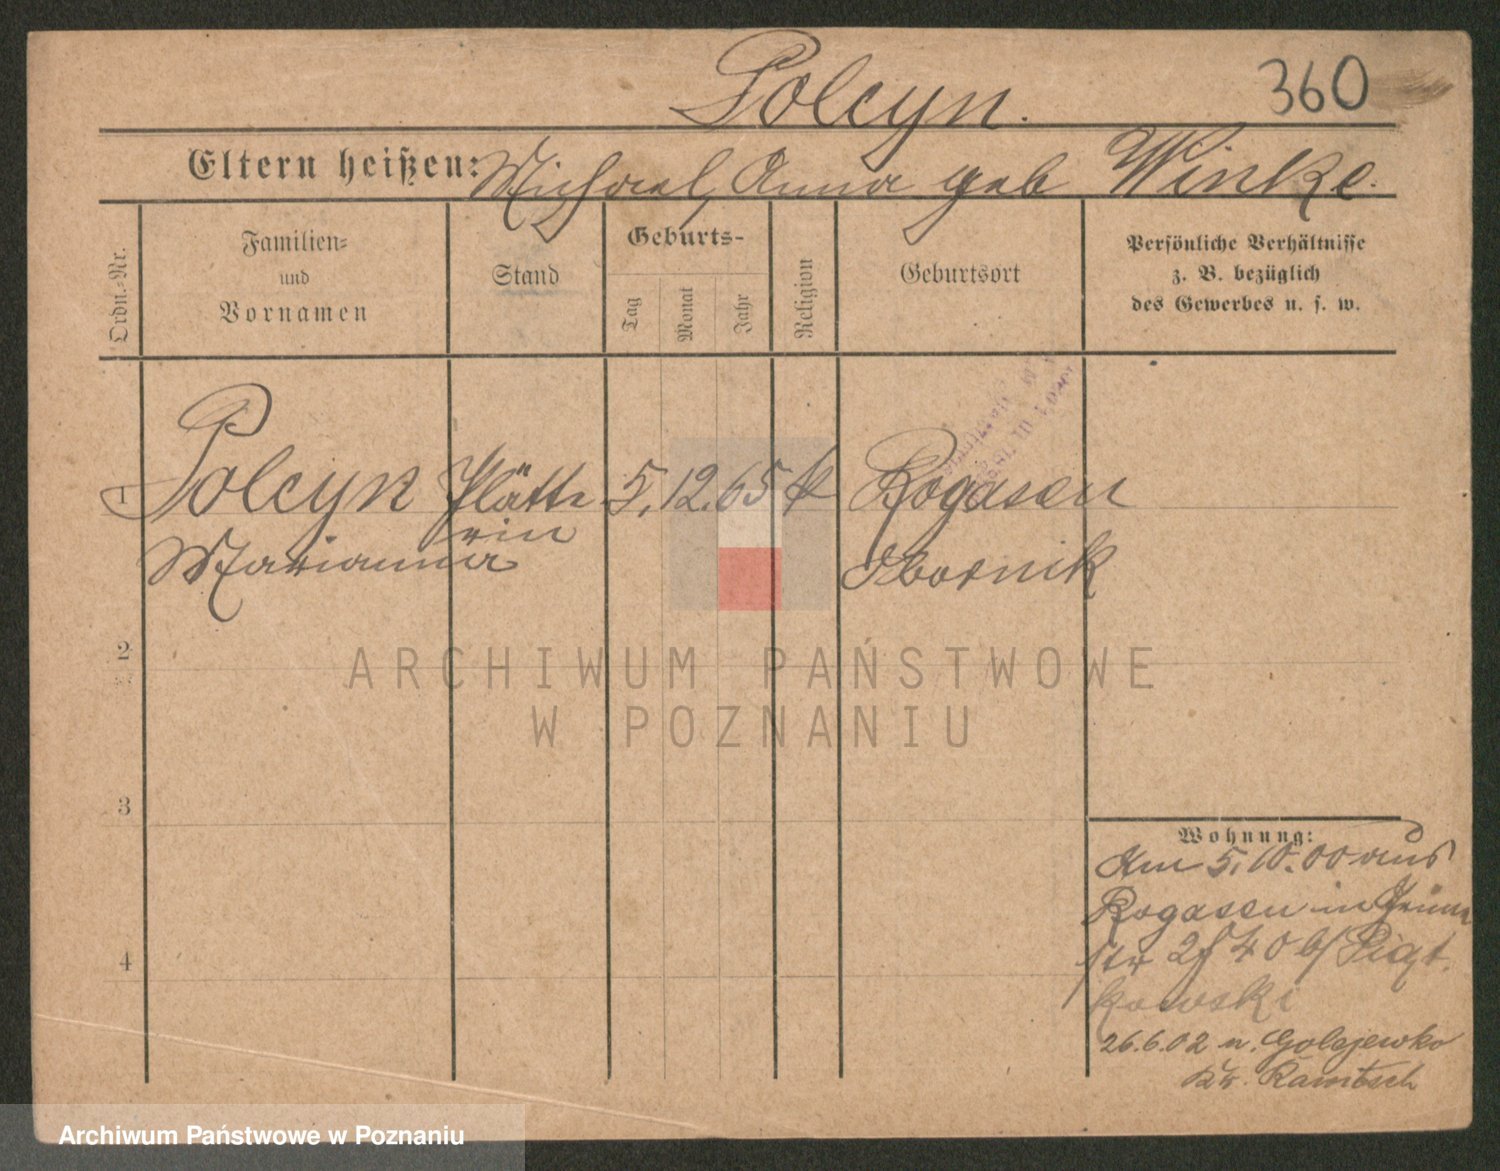 Polcyn.
360
Eltern heißen: Michael, Anna geb Winke.
Ordn.-Nr.
Familien-
und
Vornamen
Stand
Geburts-
Tag
Monat
Jahr
Religion
Geburtsort
Persönliche Verhältnisse
z. B. bezüglich
des Gewerbes u. s. w.
1 Polcyn Plätte 5. 12. 65 k Rogasen
rin
Marianna Obornik
2
3
4
Wohnung:
Am 5.10.00 aus
Rogasen in
str 40 b/
kowski
26.6.02 n. Golejewko
Kr. Rawitsch
ARCHIWUM PAŃSTWOWE
W POZNANIU
Archiwum Państwowe w Poznaniu